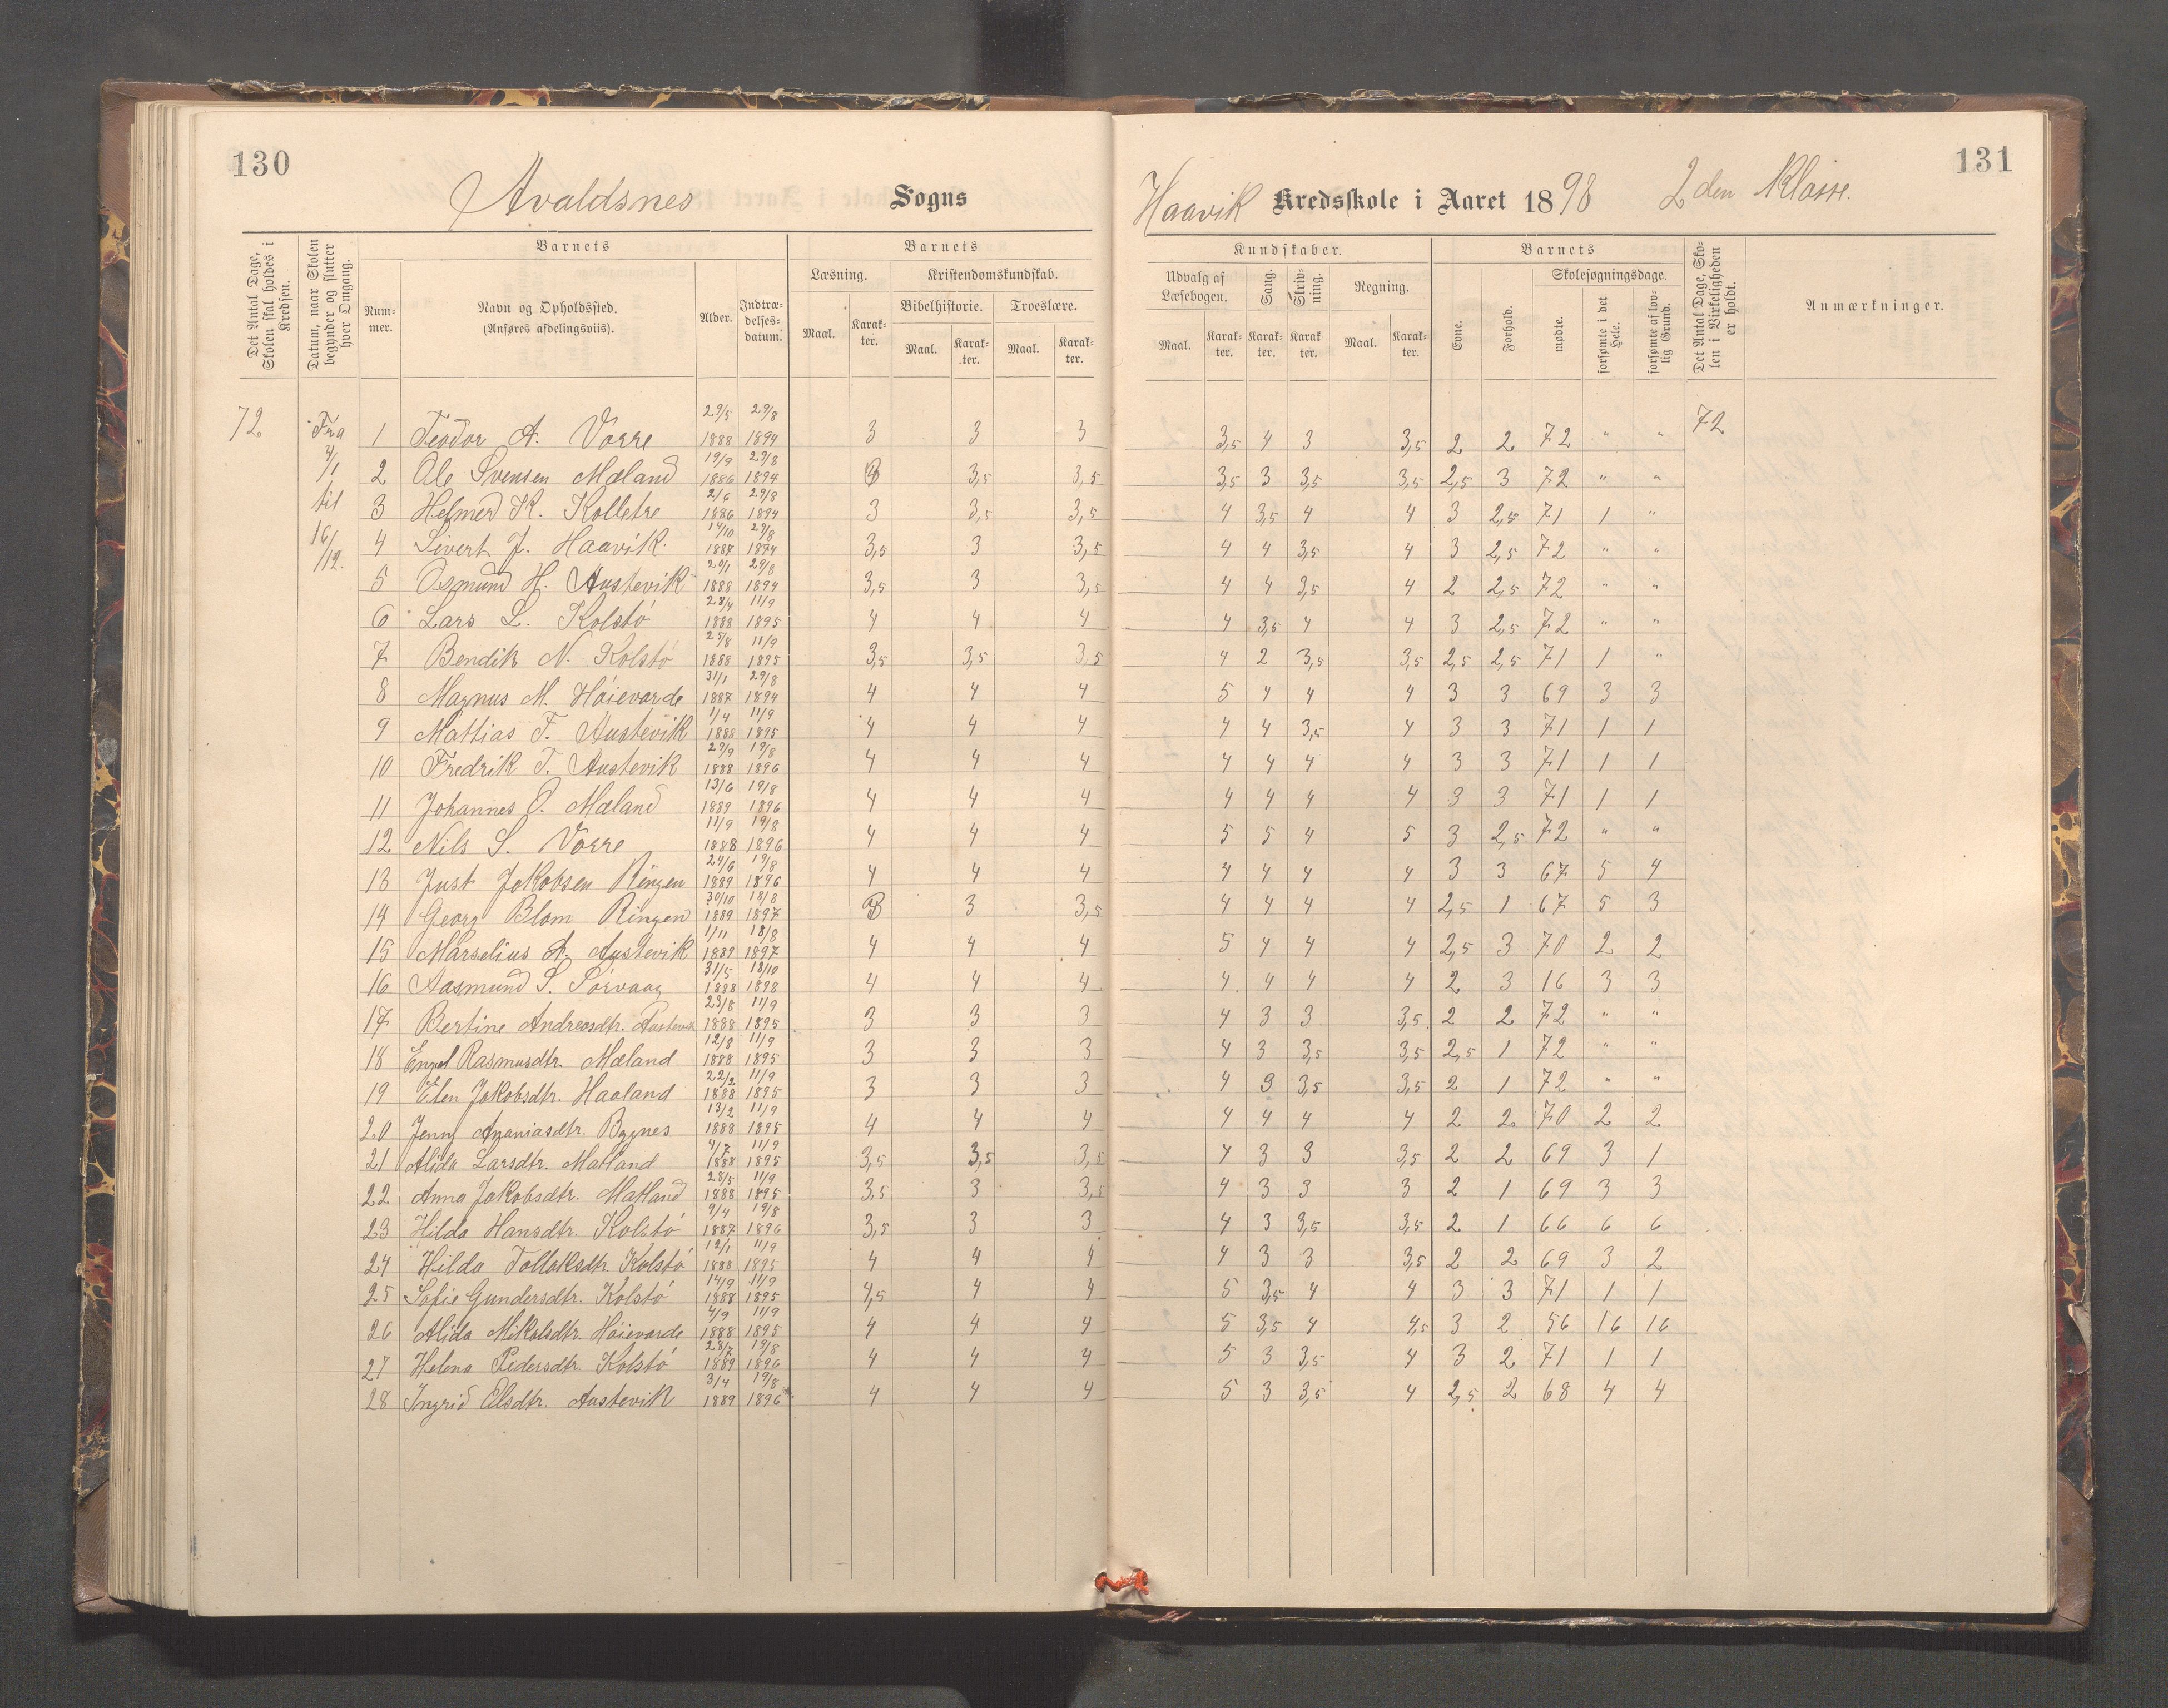 130
131
Avaldsnes Sogns
Haavik Kredsskole i Aaret 1898 2den Klasse.
Det Antal Dage, Skolen skal holdes i Kredsen.
Datum, naar Skolen begynder og slutter hver Omgang.
Barnets
Nummer.
Navn og Opholdssted. (Anføres afdelingsviis).
Alder.
Indtrædelsesdatum.
Barnets
Læsning.
Maal.
Karakter.
Kristendomskundskab.
Bibelhistorie.
Maal.
Karakter.
Troeslære.
Maal.
Karakter.
Kundskaber.
Udvalg af Læsebogen.
Maal.
Karakter.
Sang.
Karakter.
Skrivning.
Karakter.
Regning.
Maal.
Karakter.
Barnets
Evne.
Forhold.
Skolesøgningsdage.
mødte.
forsømte i det Hele.
forsømte af lovlig Grund.
Det Antal Dage, Skolen i Virkeligheden er holdt.
Anmærkninger.
72 Fra 4/1 til 16/12. 72
1 Teodor A. Vorre 29/5 1888 29/8 1894 3 3 3 3,5 4 3 3,5 2 2 72 " "
2 Ole Svensen Mæland 19/9 1886 29/8 1894 3,5 3,5 3,5 3 3,5 3,5 2,5 3 72 " "
3 Helmer K. Kolletre 2/6 1886 29/8 1894 3 3,5 3,5 4 3,5 4 4 3 2,5 71 1 "
4 Sivert J. Haavik. 14/10 1887 29/8 1894 3,5 3 3,5 4 4 3,5 4 3 2,5 72 " "
5 Osmund H. Austevik 20/1 1888 29/8 1894 3,5 3 3,5 4 4 3,5 4 2 2,5 72 " "
6 Lars L. Kolstó 28/4 1888 11/9 1895 4 4 4 4 3,5 4 4 3 2,5 72 " "
7 Bendik N. Kolstó 25/8 1888 11/9 1895 3,5 3,5 3,5 4 2 3,5 3,5 2,5 2,5 71 1 "
8 Magnus M. Hóievarde 31/1 1887 29/8 1894 4 4 4 5 4 4 4 3 3 69 3 3
9 Mattias F. Austevik 1/4 1888 11/9 1895 4 4 4 4 4 3,5 4 3 3 71 1 1
10 Fredrik T. Austevik 29/9 1888 19/8 1896 4 4 4 4 4 4 4 3 3 71 1 1
11 Johannes O. Mæland 13/6 1889 19/8 1896 4 4 4 4 4 4 4 3 3 71 1 1
12 Nils S. Vorre 11/9 1888 19/8 1896 4 4 4 5 5 4 5 3 2,5 72 " "
13 Just Jakobsen Ringen 24/6 1889 19/8 1896 4 4 4 4 4 4 4 3 3 67 5 4
14 Georg Blom Ringen 30/10 1889 18/8 1897 3 3 3,5 4 4 4 4 2,5 1 67 5 3
15 Marselius A. Austevik 1/11 1889 18/8 1897 4 4 4 5 4 4 4 2,5 3 70 2 2
16 Aasmund S. Sórvaag 31/5 1888 18/10 1898 4 4 4 4 4 4 4 2 3 16 3 3
17 Bertine Andreasdtr. Austevik 23/8 1888 11/9 1895 3 3 3 4 3 3 3,5 2 2 72 " "
18 Engel Rasmusdtr. Mæland 12/8 1888 11/9 1895 3 3 3 4 3 3,5 3,5 2,5 1 72 " "
19 Elen Jakobsdtr. Haaland 22/2 1888 11/9 1895 3 3 3 4 3 3,5 3,5 2 1 72 " "
20 Jenny Ananiasdtr. Bygnes 13/2 1888 11/9 1895 4 4 4 4 4 4 4 2 2 70 2 2
21 Alida Larsdtr. Matland 4/7 1888 11/9 1895 3,5 3,5 3,5 4 3 3 3,5 2 2 69 3 1
22 Anna Jakobsdtr. Matland 28/5 1888 11/9 1895 3,5 3 3,5 4 3 3 3 2 1 69 3 3
23 Hilda Hansdtr. Kolstó 9/4 1887 19/8 1896 3,5 3 3 4 3 3,5 3,5 2 1 66 6 6
24 Hilda Tollaksdtr. Kolstó 12/1 1888 11/9 1895 4 4 4 4 3 3 3,5 2 2 69 3 2
25 Sofie Gundersdtr. Kolstó 14/9 1888 11/9 1895 4,5 4 4 5 3,5 4 4 3 3 71 1 1
26 Alida Mikalsdtr. Hóievarde 4/9 1888 11/9 1895 4 4 4 5 3,5 4 4,5 3 2 56 16 16
27 Helena Pedersdtr. Kolstó 28/7 1889 19/8 1896 4 4 4 5 3 3,5 4 3 2 71 1 1
28 Ingrid Olsdtr. Austevik 3/4 1889 19/8 1896 4 4 4 5 3 3,5 4 2,5 2 68 4 4